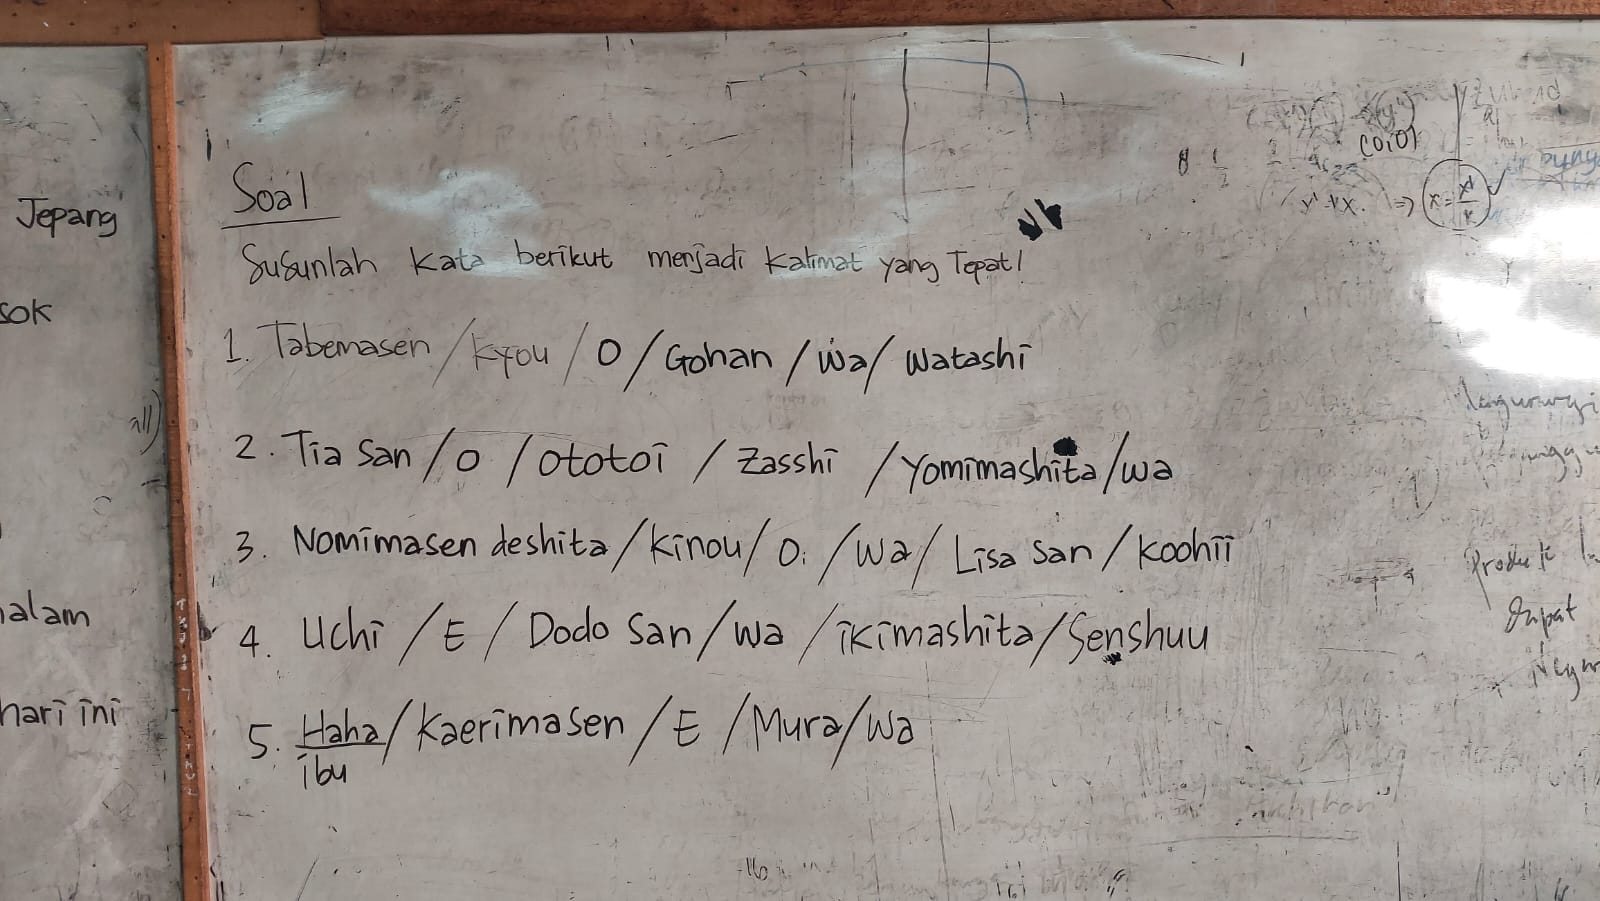 Jepang
sok
alam
hari ini
Soal
Susunlah kata berikut menjadi kalimat yang Tepat!
1. Tabemasen / kyou / O / Gohan / wa / watashi
2. Tia San / o / ototoi / Zasshi / Yomimashita / wa
3. Nomimasen deshita / kinou / o. / wa / Lisa San / koohii
4. Uchi / E / Dodo San / wa / ikimashita / Senshuu
5. Haha / kaerimasen / E / Mura / wa
ibu
(0,0)
Produk
Dapat